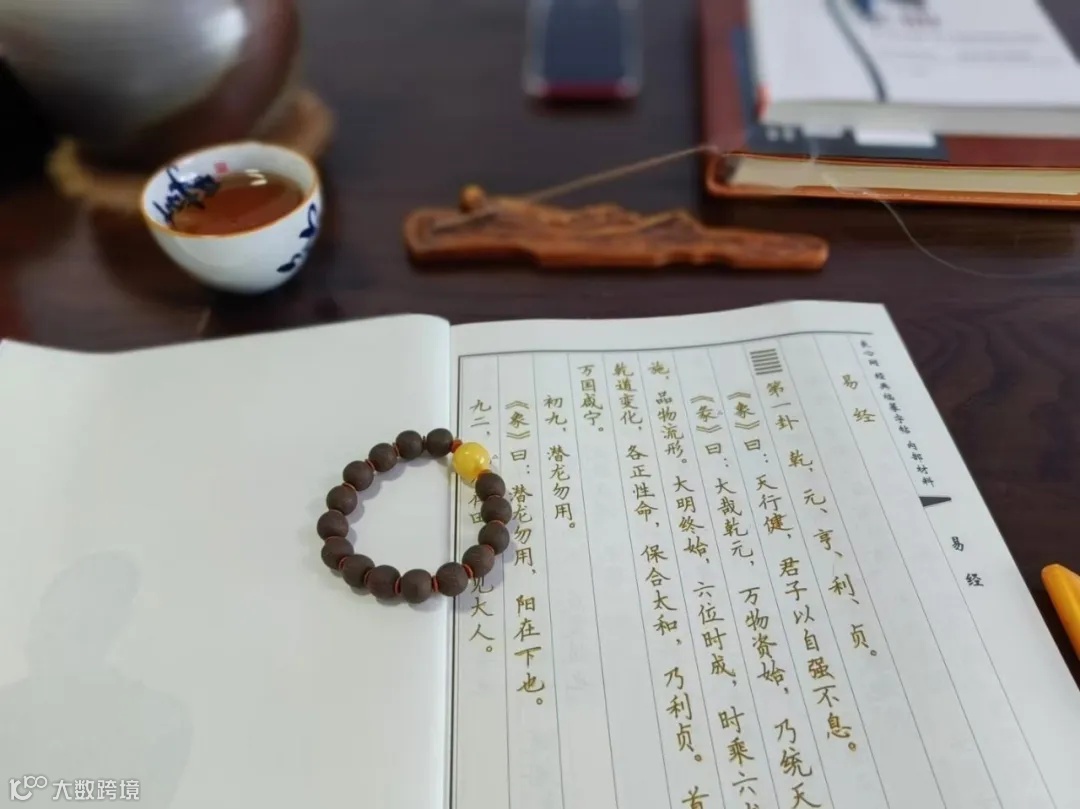 经典临摹字帖 内部材料
易经
易经
第一卦 乾,元、亨、利、贞。
《象》曰:天行健,君子以自强不息。
《彖》曰:大哉乾元,万物资始,乃统天
施,品物流形。大明终始,六位时成,时乘六
乾道变化,各正性命,保合太和,乃利贞。首
万国咸宁。
初九,潜龙勿用。
《象》曰:潜龙勿用,阳在下也。
九二,田见大人。
大数跨境